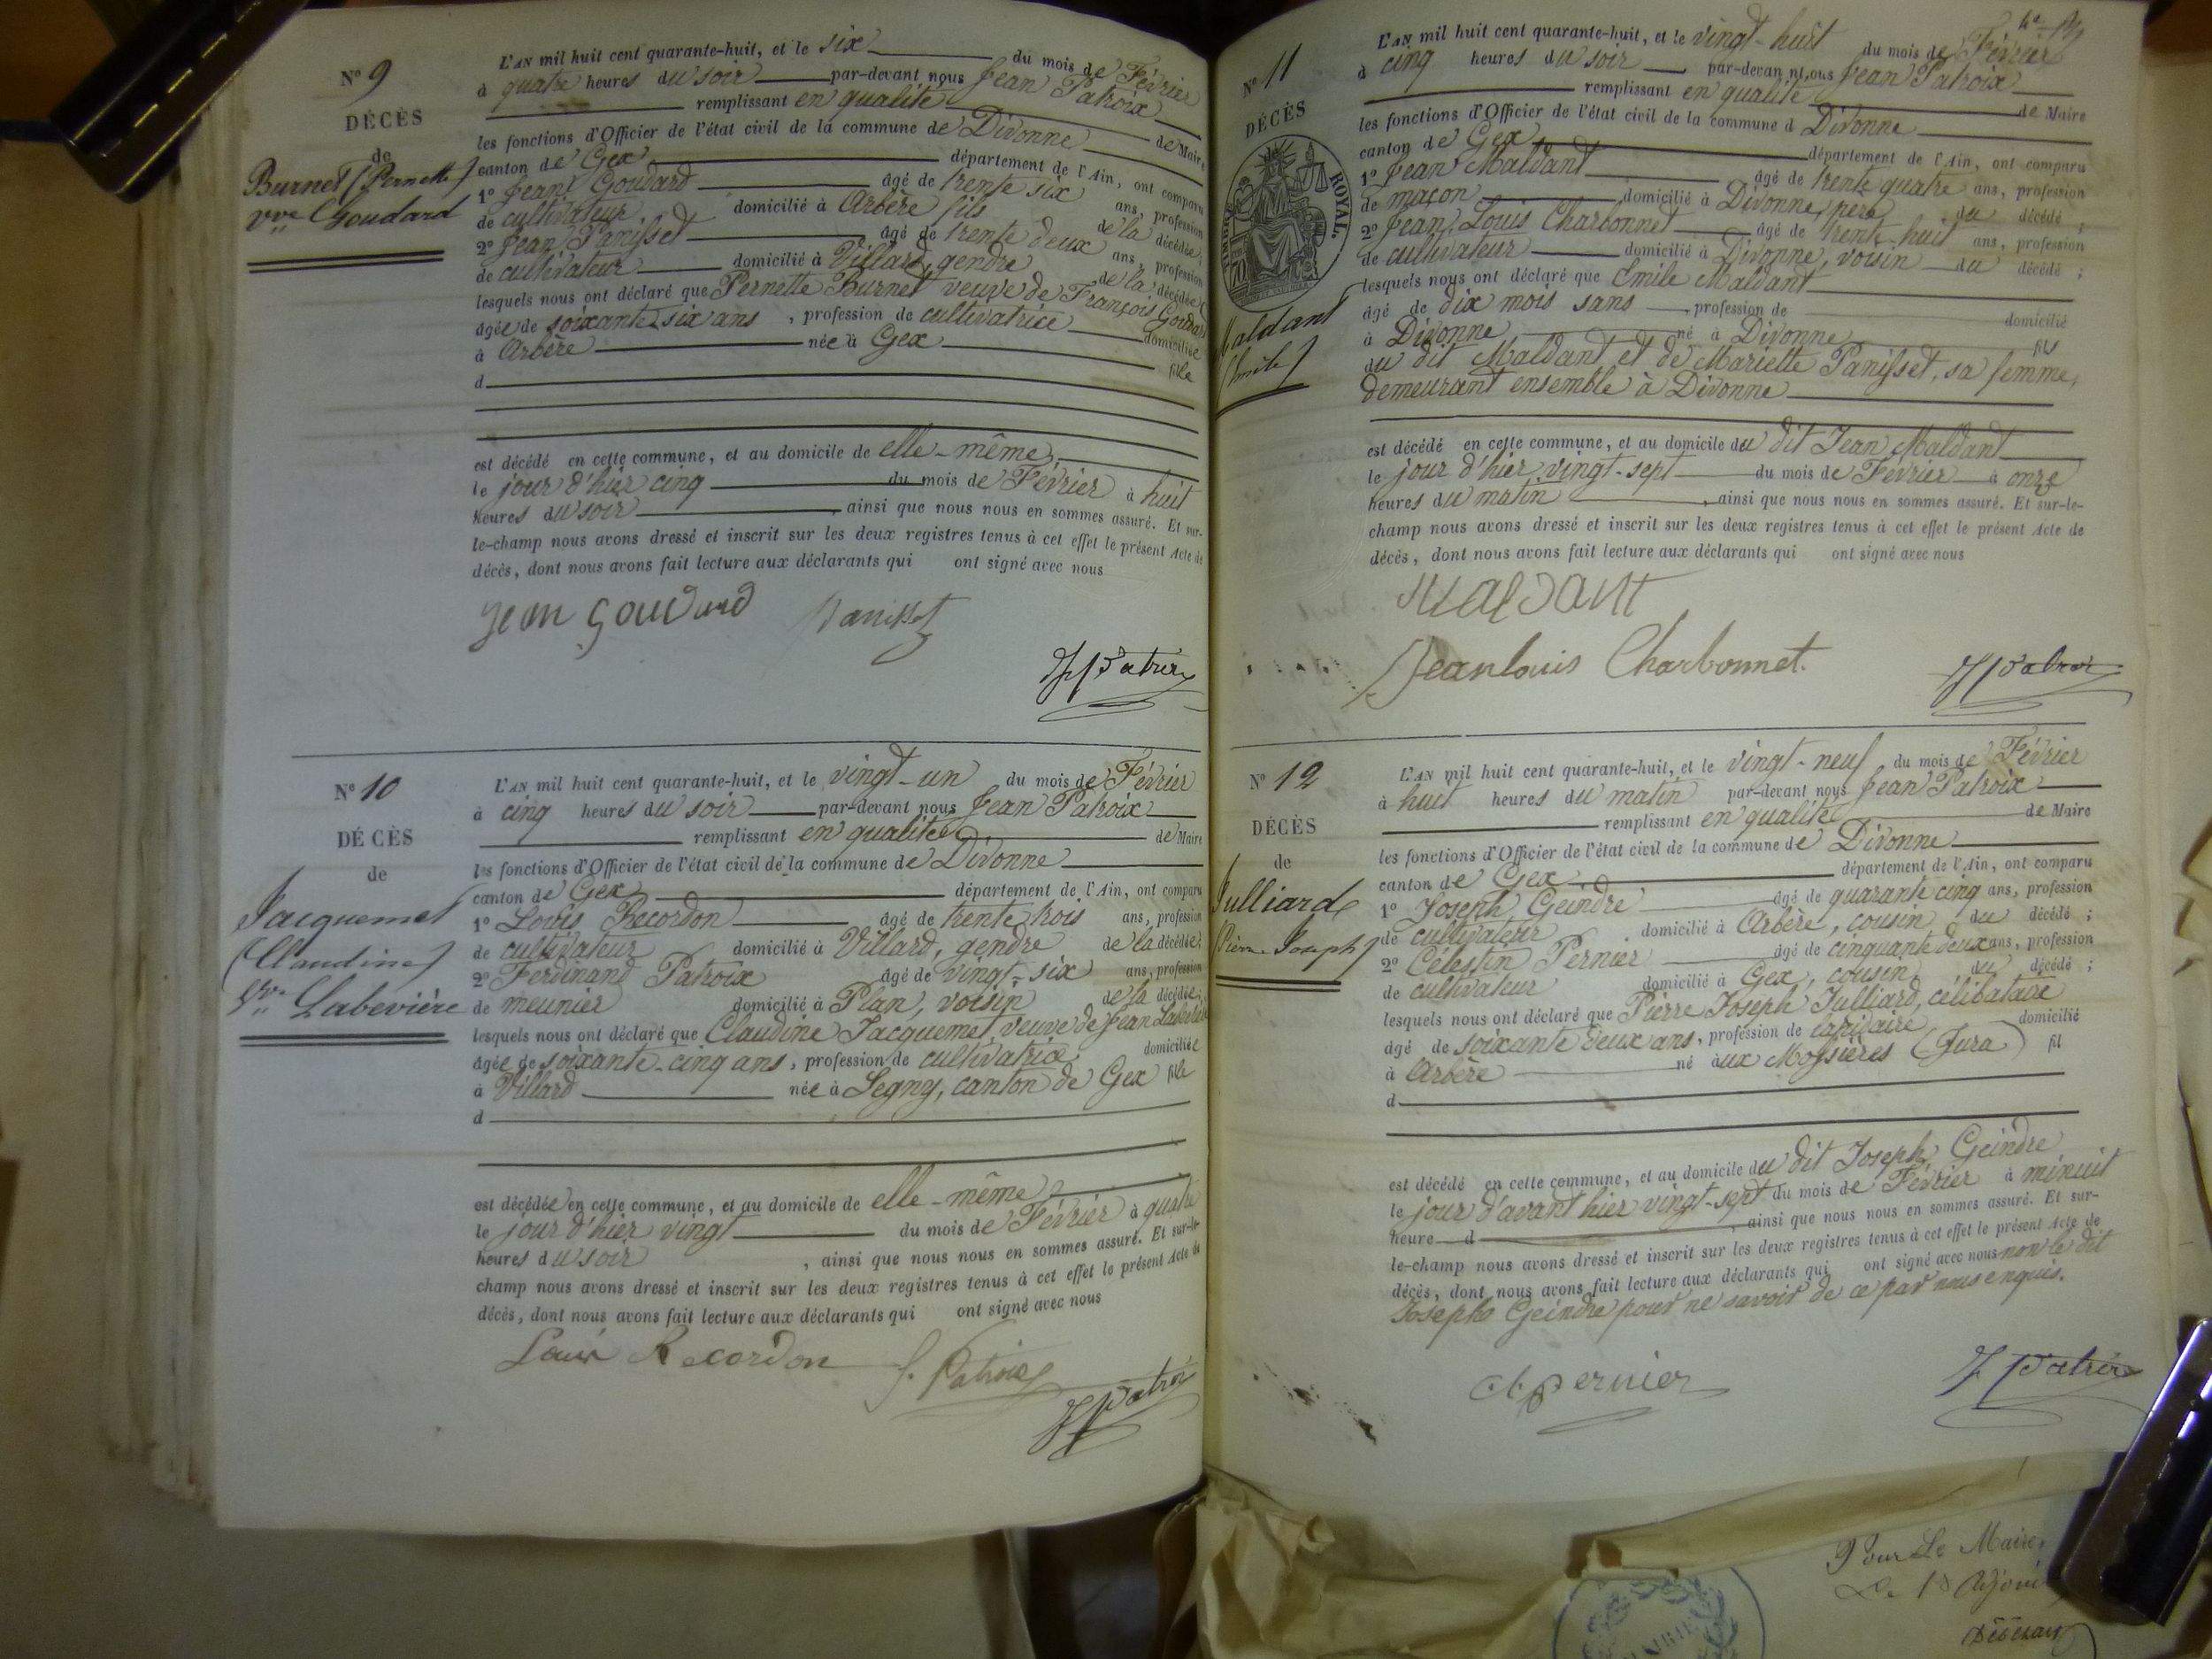 N° 9
DÉCÈS
de
Burnet (Pernette)
vve Goudard
L'AN mil huit cent quarante-huit, et le six du mois de Février
à quatre heures du soir par-devant nous Jean Patroix
remplissant en qualité de Maire
les fonctions d'Officier de l'état civil de la commune de Divonne
canton de Gex département de l'Ain, ont comparu
1° Jean Goudard âgé de trente six ans, profession
de cultivateur domicilié à Arbère fils de la décédée,
2° Jean Panisset âgé de trente deux ans, profession
de cultivateur domicilié à Villard, gendre de la décédée;
lesquels nous ont déclaré que Pernette Burnet veuve de François Goudard
âgée de soixante six ans, profession de cultivatrice domiciliée
à Arbère née à Gex fille
d
est décédé en cette commune, et au domicile de elle-même,
le jour d'hier cinq du mois de Février à huit
heures du soir, ainsi que nous nous en sommes assuré. Et sur-
le-champ nous avons dressé et inscrit sur les deux registres tenus à cet effet le présent Acte de
décès, dont nous avons fait lecture aux déclarants qui ont signé avec nous
Jean Goudard Panisset
J Patroix
N° 10
DÉCÈS
de
Jacquemet
(Claudine)
Vve Labevière
L'AN mil huit cent quarante-huit, et le vingt-un du mois de Février
à cinq heures du soir par-devant nous Jean Patroix
remplissant en qualité de Maire
les fonctions d'Officier de l'état civil de la commune de Divonne
canton de Gex département de l'Ain, ont comparu
1° Louis Recordon âgé de trente trois ans, profession
de cultivateur domicilié à Villard, gendre de la décédée;
2° Ferdinand Patroix âgé de vingt-six ans, profession
de meunier domicilié à Plan, voisin de la décédée;
lesquels nous ont déclaré que Claudine Jacquemet, veuve de Jean Labevière
âgée de soixante-cinq ans, profession de cultivatrice domiciliée
à Villard née à Segny, canton de Gex fille
d
est décédée en cette commune, et au domicile de elle-même
le jour d'hier vingt du mois de Février à quatre
heures du soir, ainsi que nous nous en sommes assuré. Et sur-le-
champ nous avons dressé et inscrit sur les deux registres tenus à cet effet le présent Acte de
décès, dont nous avons fait lecture aux déclarants qui ont signé avec nous
Louis Recordon f. Patroix
J Patroix
N° 11
DÉCÈS
TIMBRE ROYAL.
Maldant
(Emile)
L'AN mil huit cent quarante-huit, et le vingt-huit du mois de Février
à cinq heures du soir par-devant nous Jean Patroix
remplissant en qualité de Maire
les fonctions d'Officier de l'état civil de la commune d Divonne
canton de Gex département de l'Ain, ont comparu
1° Jean Maldant âgé de trente quatre ans, profession
de maçon domicilié à Divonne, père du décédé;
2° Jean Louis Charbonnet âgé de trente huit ans, profession
de cultivateur domicilié à Divonne, voisin du décédé;
lesquels nous ont déclaré que Emile Maldant
âgé de dix mois sans profession de domicilié
à Divonne né à Divonne fils
du dit Maldant, et de Mariette Panisset, sa femme,
demeurant ensemble à Divonne
est décédé en cette commune, et au domicile du dit Jean Maldant
le jour d'hier vingt-sept du mois de Février à onze
heures du matin, ainsi que nous nous en sommes assuré. Et sur-le-
champ nous avons dressé et inscrit sur les deux registres tenus à cet effet le présent Acte de
décès, dont nous avons fait lecture aux déclarants qui ont signé avec nous
Maldant
Jeanlouis Charbonnet.
J Patroix
N° 12
DÉCÈS
de
Julliard
(Pierre Joseph)
L'AN mil huit cent quarante-huit, et le vingt-neuf du mois de Février
à huit heures du matin par-devant nous Jean Patroix
remplissant en qualité de Maire
les fonctions d'Officier de l'état civil de la commune de Divonne
canton de Gex département de l'Ain, ont comparu
1° Joseph Geindre âgé de quarante cinq ans, profession
de cultivateur domicilié à Arbère, cousin du décédé;
2° Célestin Pernier âgé de cinquante deux ans, profession
de cultivateur domicilié à Gex, cousin du décédé;
lesquels nous ont déclaré que Pierre Joseph Julliard, célibataire
âgé de soixante deux ans, profession de lapidaire domicilié
à Arbère né aux Molsières (Jura) fil
d
est décédé en cette commune, et au domicile du dit Joseph Geindre
le jour d'avant hier vingt-sept du mois de Février à minuit
heure d, ainsi que nous nous en sommes assuré. Et sur-
le-champ nous avons dressé et inscrit sur les deux registres tenus à cet effet le présent Acte de
décès, dont nous avons fait lecture aux déclarants qui ont signé avec nous non le dit
Joseph Geindre pour ne savoir de ce par nous enquis.
Pernier
J Patroix
Pour Le Maire,